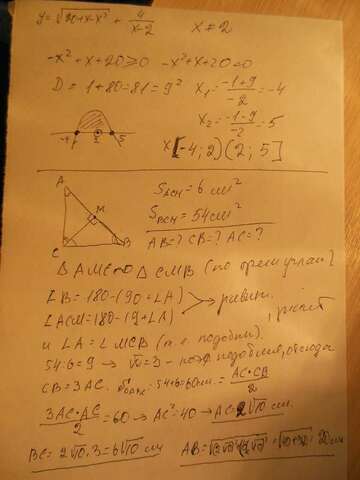 y=√20+x-x² + 4/x-2    x≠2
-x²+x+20≥0  -x²+x+20=0
D=1+80=81=9²  x₁=(-1+9)/-2=-4
x₂=(-1-9)/-2=5
-4 2 5
x[-4;2)(2;5]
A
M
C
B
S_ACM=6 см²
S_BCM=54 см²
AB=? CB=? AC=?
△AMC∾△CMB (по трем углам)
∠B=180-(90+∠A)
∠ACM=180-(9+∠A) > равны,
и ∠A=∠MCB (п.
54:6=9 → √9=3 - подобия, отсюда
CB=3AC. 54+6=60 см = AC·CB/2
3AC·AC/2=60 → AC²=40 → AC=2√10 см.
BC=2√10·3=6√10 см  AB= =20 см